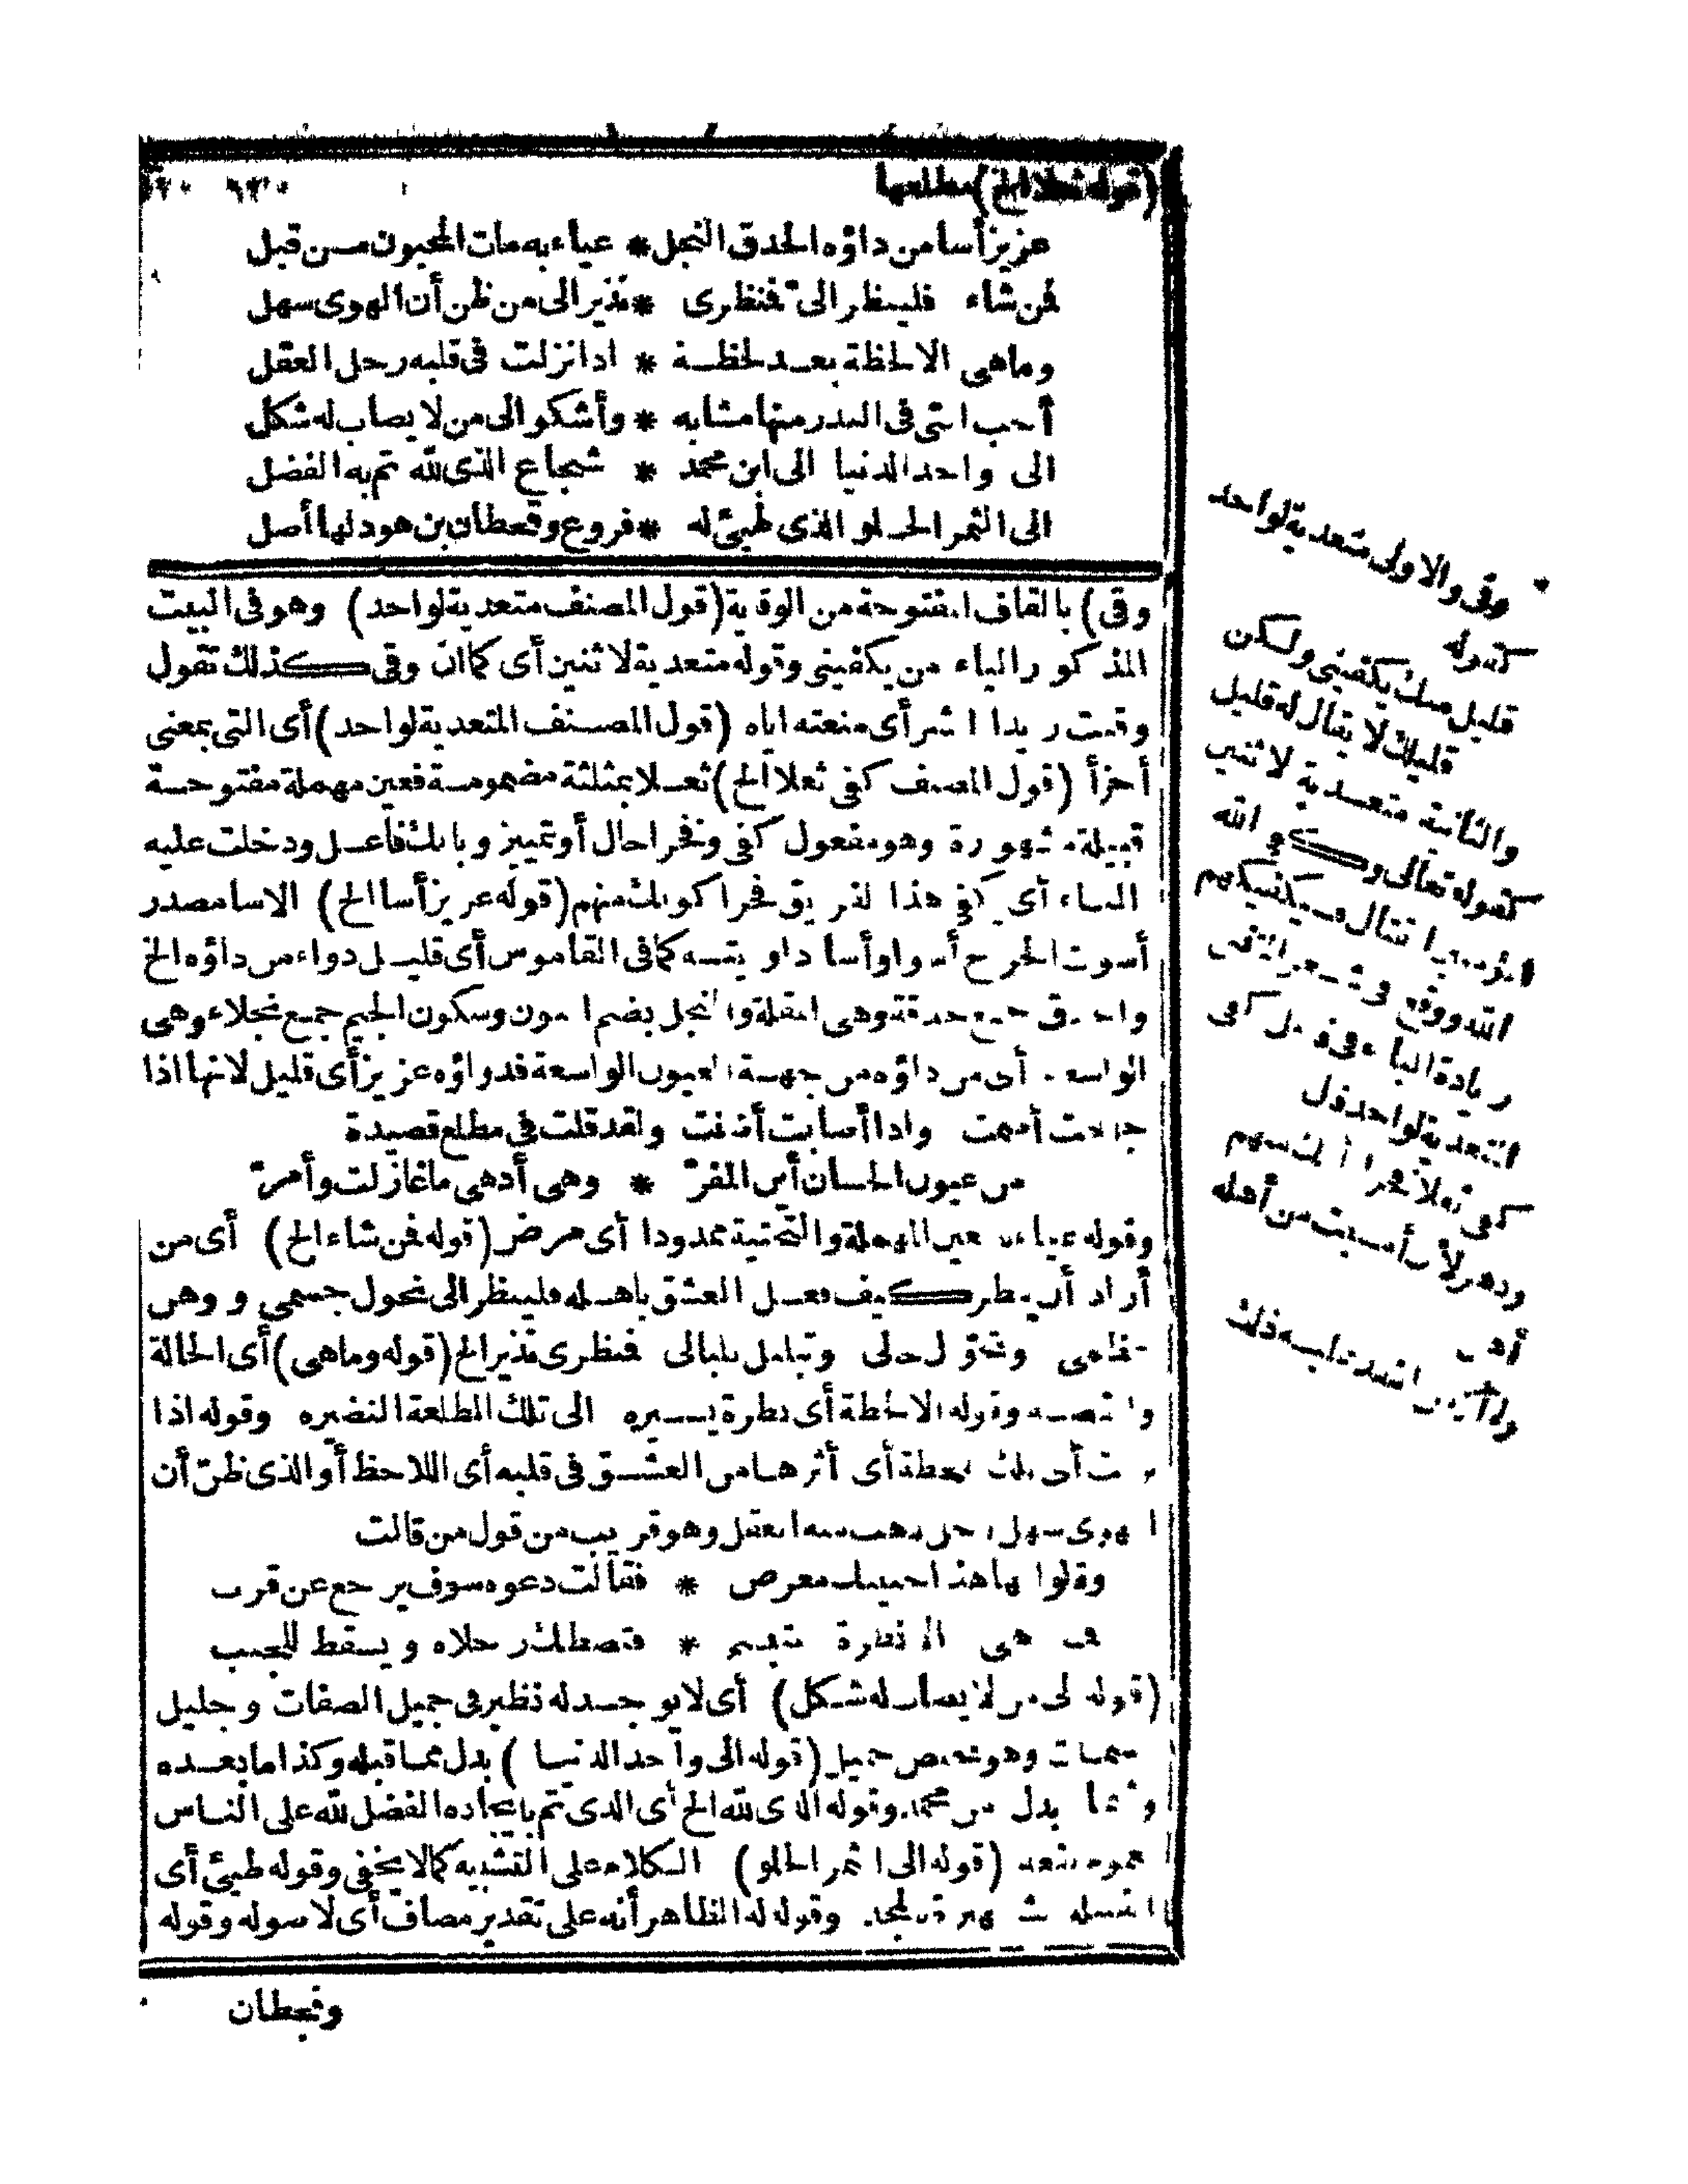 (قوله ثعلا الخ) مطلعها
عزيز أسا من داؤه الحدق النجل * عياء به مات المحبون من قبل
فمن شاء فلينظر الى فنظرى * نذير الى من ظن أن الهوى سهل
وما هى الا لحظة بعد لحظة * اذا نزلت فى قلبه رحل العقل
أحب التى فى البدر منها مشابه * وأشكو الى من لا يصاب له شكل
الى واحد الدنيا الى ابن محمد * شجاع الذى لله تم به الفضل
الى الثمر الحلو الذى طيئ له * فروع وقحطان بن هود لها أصل
وقى) بالقاف المفتوحة من الوقاية (قول المصنف متعدية لواحد) وهو فى البيت
المذكور الياء من يكفينى وقوله متعدية لاثنين أى كما ان وقى كذلك تقول
وقيت زيدا الشر أى منعته اياه (قول المصنف المتعدية لواحد) أى التى بمعنى
أجزأ (قول المصنف كفى ثعلا الخ) ثعلا بمثلثة مضمومة فعين مهملة مفتوحة
قبيلة مشهورة وهو مفعول كفى وفخرا حال أو تمييز وبانك فاعل ودخلت عليه
الباء أى كفى هذا الفريق فخرا كونك منهم (قوله عزيز أسا الخ) الاسا مصدر
أسوت الجرح أسوا وأسا داويته كما فى القاموس أى قليل دواء من داؤه الخ
والحدق جمع حدقة وهى المقلة والنجل بضم النون وسكون الجيم جمع نجلاء وهى
الواسعة أى من داؤه من جهة العيون الواسعة فدواؤه عزيز أى قليل لانها اذا
أصمت واذا أصابت أنفذت ولقد قلت فى مطلع قصيدة
من عيون الحسان أين المفر * وهى أدهى ما غازلت وأمر
وقوله عياء بعين المهملة والتحتية ممدودا أى مرض (قوله فمن شاء الخ) أى من
أراد أن ينظر كيف فعل العشق باهله فلينظر الى نحول جسمى ووهن
عظامى وتحول حالى وتبلبل بلبالى فنظرى نذير الخ (قوله وما هى) أى الحالة
والقصة وقوله الا لحظة أى نظرة يسيره الى تلك الطلعة النضيره وقوله اذا
نزلت أى تلك اللحظة أى أثرها من العشق فى قلبه أى اللاحظ أو الذى ظن أن
الهوى سهل رحل ذهب منه العقل وهو قريب من قول من قالت
وقالوا لها هذا حبيبك معرض * فقالت دعوه سوف يرجع عن قرب
فما هى الا نظرة بتبسم * فتصطك رجلاه ويسقط للجنب
(قوله الى من لا يصاب له شكل) أى لا يوجد له نظير فى جميل الصفات وجليل
السمات وهو تخلص جميل (قوله الى واحد الدنيا) بدل مما قبله وكذا ما بعده
بدل من محمد وقوله الذى لله الخ أى الذى تم بايجاده الفضل لله على الناس
(قوله الى الثمر الحلو) الكلام على التشبيه كما لا يخفى وقوله طيئ أى
وقوله له الظاهر أنه على تقدير مضاف أى لاصوله وقوله
وقحطان
* وقى والاولى متعدية لواحد
كقوله
قليل منك يكفينى ولكن
قليلك لا يقال له قليل
والثانية متعدية لاثنين
كقوله تعالى وكفى الله
المؤمنين القتال فسيكفيكهم
الله ووقع فى شعر المتنبى
زيادة الباء فى فاعل كفى
المتعدية لواحد قال
كفى ثعلا فخرا بأنك منهم
ودهر لأن أمسيت من أهله
أهل